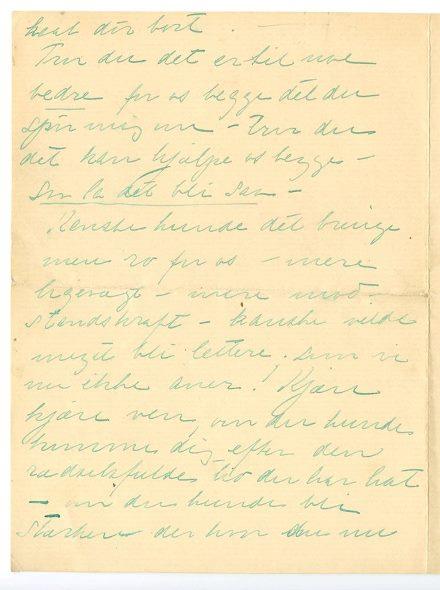 helt der bort.
Tror du det er til noe
bedre for os begge det du
spør mig om – tror du
det kan hjælpe os begge –
saa la det bli saa –
Kanske kunde det bringe
mere ro for os – mere
ligevægt – mere mod-
standskraft – kanske vilde
meget bli lettere. som vi
nu ikke aner! Kjære
kjære ven, om du kunde
komme dig efter den
rædselsfulde tid du har hat
– om du kunde bli
stærkere der hvor du nu